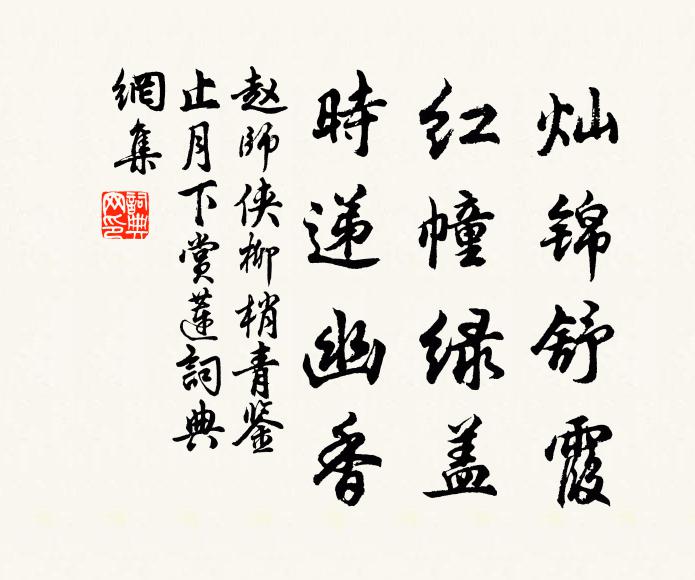 灿锦舒霞
红幢绿盖
时递幽香
赵师侠柳梢青鉴
止月下赏莲詞典
網集
詞典
网印